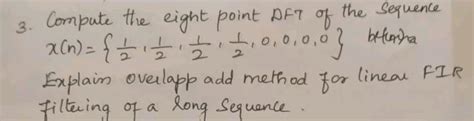 3. Compute the eight point DFT of the Sequence
x(n) = { 1/2, 1/2, 1/2, 1/2, 0, 0, 0, 0 }
Explain overlapp add method for linear FIR
filtering of a long Sequence.